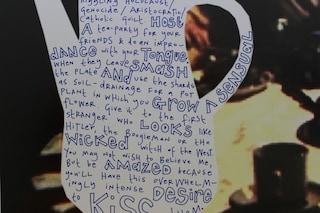 NIGGLING HOLOCAUST/
GENOCIDE / ARISTOCRATIC/
CATHOLIC GUILT HOST
A TEA-PARTY FOR YOUR
FRIENDS & DO AN IMPROV
DANCE WITH YOUR TONGUE.
WHEN THEY LEAVE SMASH
THE PLATE AND USE THE SHARDS
AS SOIL-DRAINAGE FOR A POT
PLANT IN WHICH YOU GROW A SENSUAL
FLOWER GIVE IT TO THE FIRST
STRANGER WHO LOOKS LIKE
HITLER, THE BOOGIEMAN OR THE
WICKED WITCH OF THE WEST.
YOU MAY NOT WISH TO BELIEVE ME,
BUT BE AMAZED BECAUSE
YOU'LL HAVE THIS OVERWHELM-
INGLY INTENSE DESIRE
TO KISS THEM